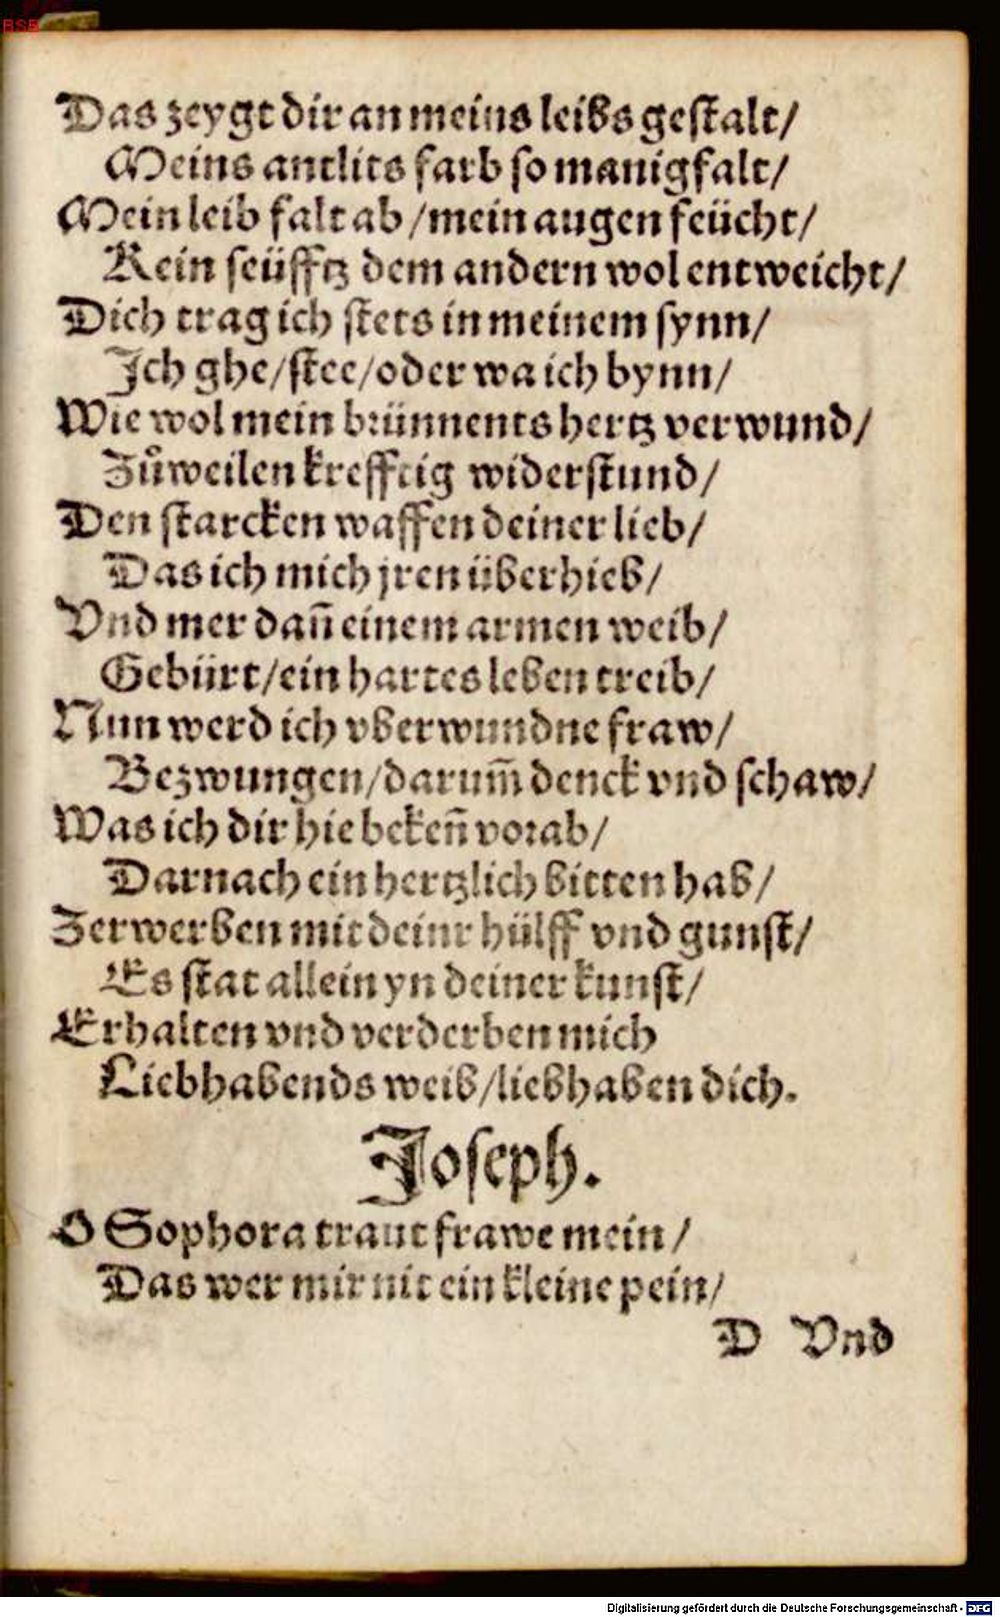 BSB
Das zeygt dir an meins leibs gestalt/
Meins antlits farb so manigfalt/
Mein leib falt ab/mein augen feücht/
Kein seüfftz dem andern wol entweicht/
Dich trag ich stets in meinem synn/
Ich ghe/stee/oder wa ich bynn/
Wie wol mein brünnents hertz verwund/
Zůweilen krefftig widerstund/
Den starcken waffen deiner lieb/
Das ich mich jren überhieb/
Vnd mer dañ einem armen weib/
Gebürt/ein hartes leben treib/
Nun werd ich vberwundne fraw/
Bezwungen/darum̃ denck vnd schaw/
Was ich dir hie bekeñ vorab/
Darnach ein hertzlich bitten hab/
Zerwerben mit deinr hülff vnd gunst/
Es stat allein yn deiner kunst/
Erhalten vnd verderben mich
Liebhabends weib/liebhaben dich.
Joseph.
O Sophora traut frawe mein/
Das wer mir nit ein kleine pein/
D Vnd
Digitalisierung gefördert durch die Deutsche Forschungsgemeinschaft - DFG